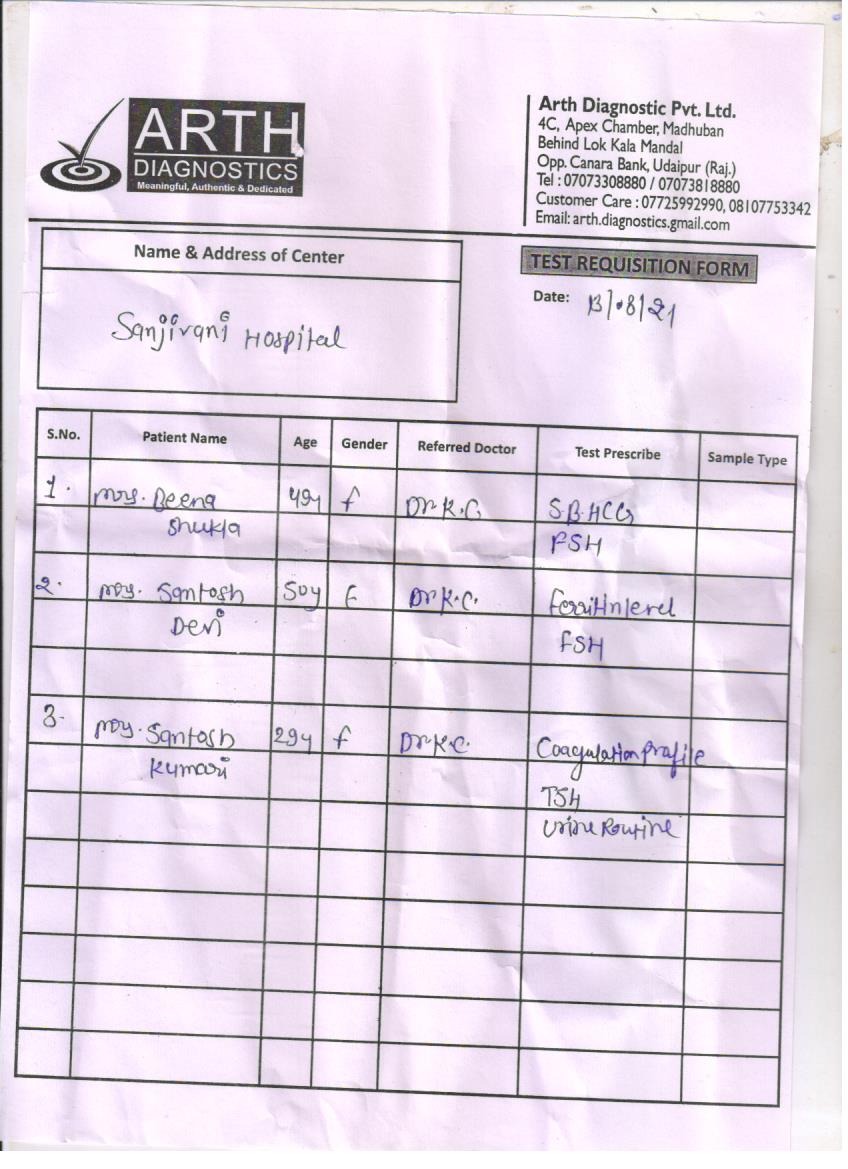 ARTH
DIAGNOSTICS
Meaningful, Authentic & Dedicated
Arth Diagnostic Pvt. Ltd.
4C, Apex Chamber, Madhuban
Behind Lok Kala Mandal
Opp. Canara Bank, Udaipur (Raj.)
Tel : 07073308880 / 07073818880
Customer Care : 07725992990, 08107753342
Email: arth.diagnostics.gmail.com
Name & Address of Center
Sanjivani Hospital
TEST REQUISITION FORM
Date: 13/08/21
S.No. Patient Name Age Gender Referred Doctor Test Prescribe Sample Type
1. Mrs. Beena 49y f Dr K.C. S.B.HCG
Shukla FSH
2. Mrs. Santosh 50y F Dr K.C. Ferritin level
Devi FSH
3. Mrs. Santosh 29y f Dr K.C. Coagulation profile
Kumari TSH
Urine Routine